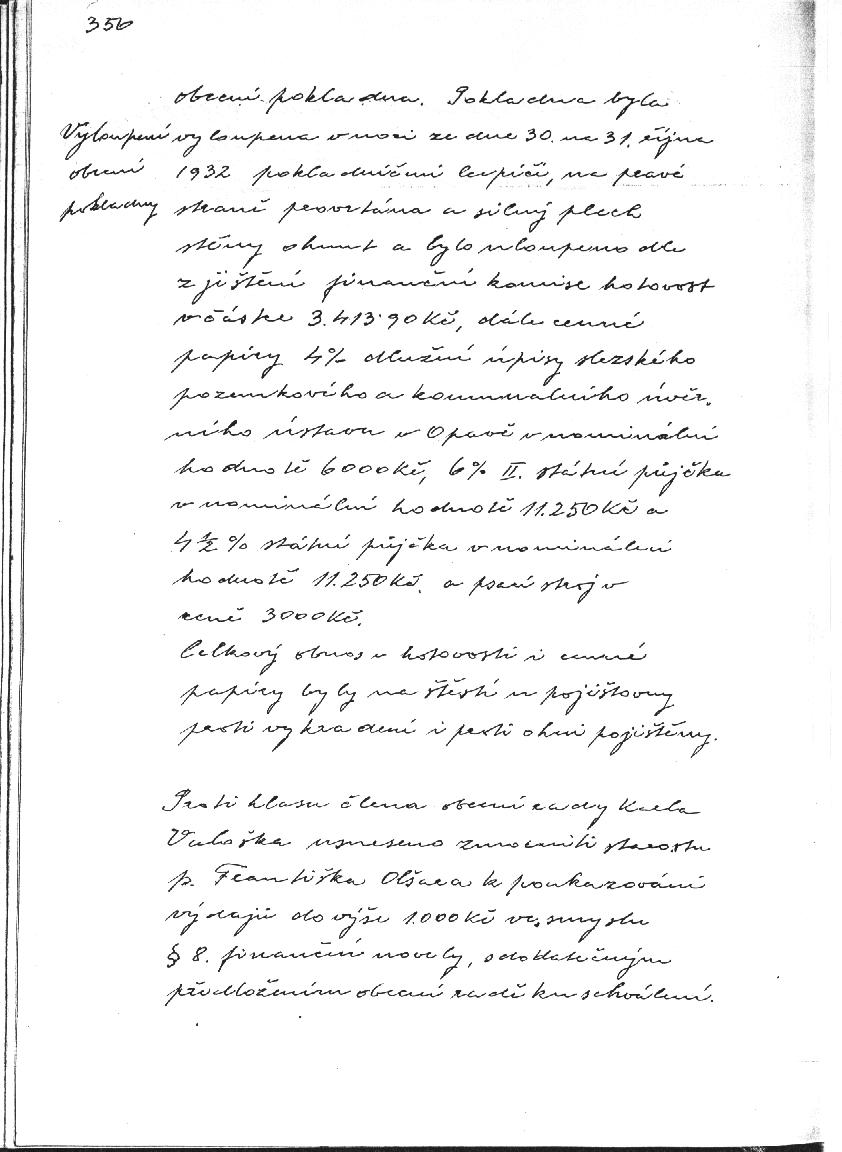 356
obecní pokladna. Pokladna byla
Vyloupení vyloupena v noci ze dne 30. na 31. října
obecní 1932 pokladničními lupiči, na pravé
pokladny straně provrtána a silný plech
stěny ohnut a bylo uloupeno dle
zjištění finanční komise hotovost
v částce 3.413·90 Kč, dále cenné
papíry 4% dlužní úpisy slezského
pozemkového a komunálního úvěr-
ního ústavu v Opavě v nominální
hodnotě 6000 Kč, 6% II. státní půjčka
v nominální hodnotě 11.250 Kč a
4 1/2 % státní půjčka v nominální
hodnotě 11.250 Kč. a psací stroj v
ceně 3000 Kč.
Celkový obnos v hotovosti i cenné
papíry byly na štěstí u pojišťovny
proti vykradení i proti ohni pojištěny.
Proti hlasu člena obecní rady Karla
usneseno zmocniti starostu
p. Františka Olšara k poukazování
výdajů do výše 1.000 Kč ve smyslu
§ 8. finanční novely, s dodatečným
předložením obecní radě ku schválení.